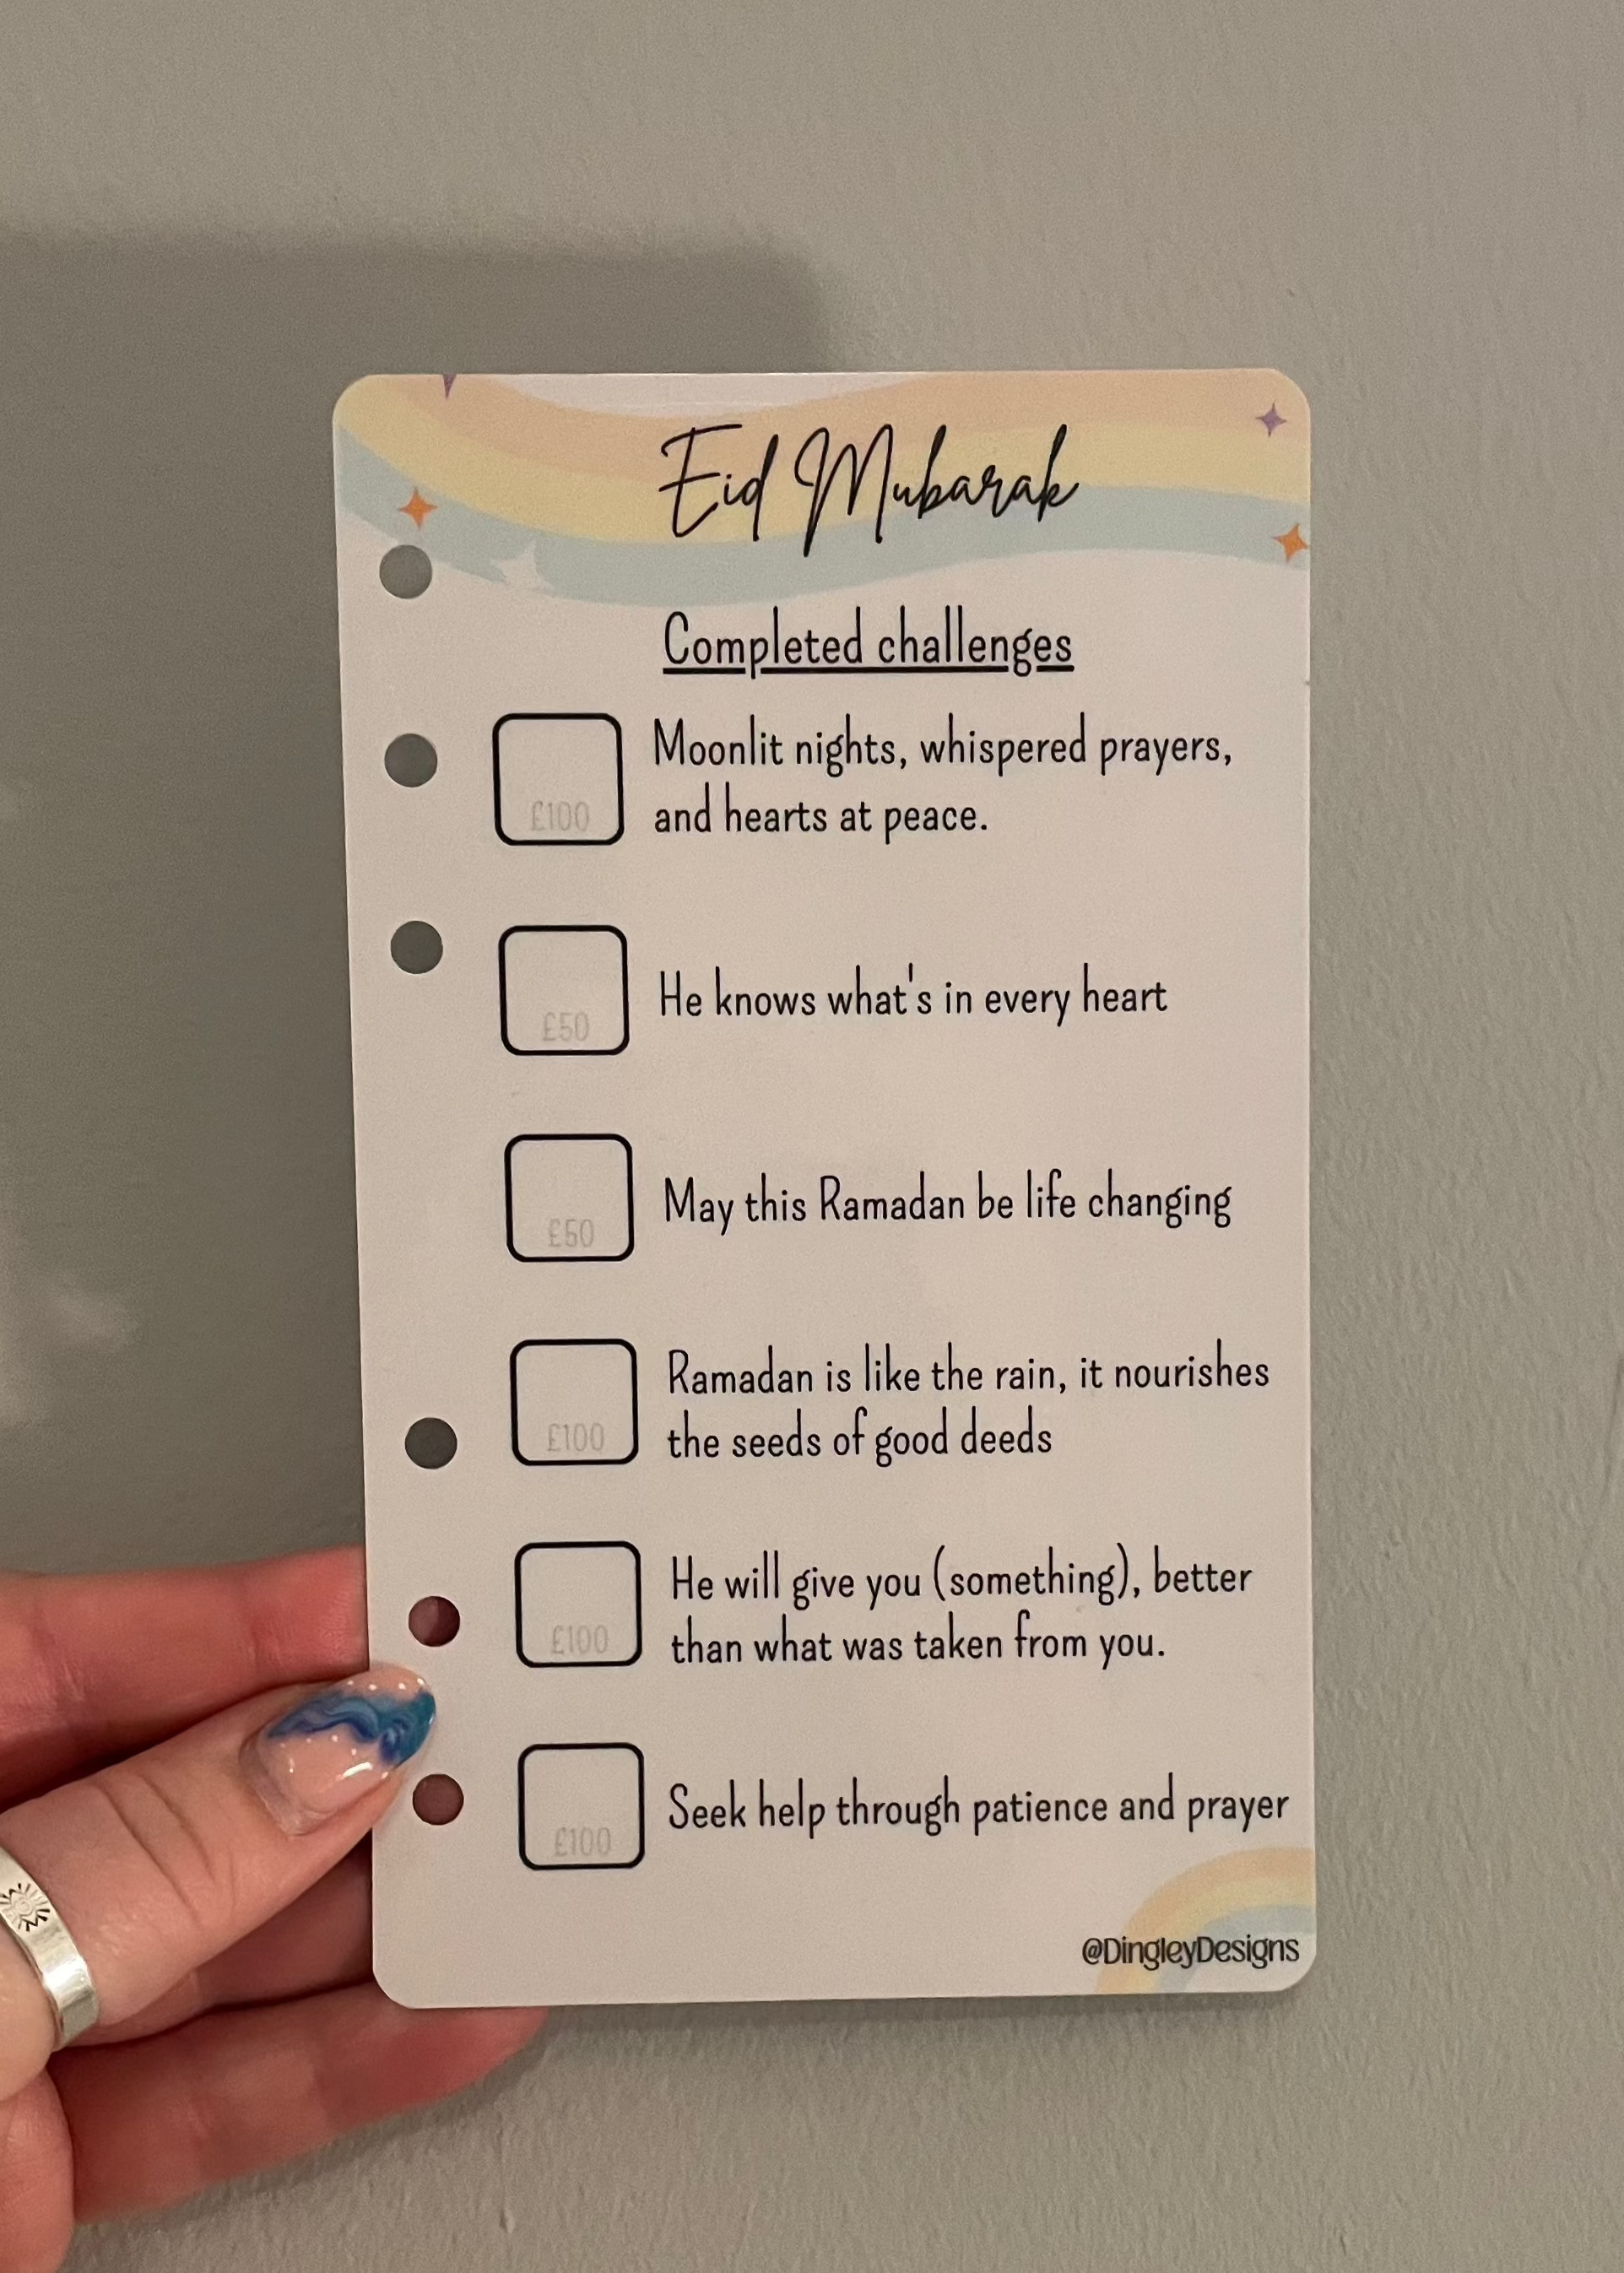 Eid Mubarak
Completed challenges
£100
Moonlit nights, whispered prayers,
and hearts at peace.
£50
He knows what's in every heart
£50
May this Ramadan be life changing
£100
Ramadan is like the rain, it nourishes
the seeds of good deeds
£100
He will give you (something), better
than what was taken from you.
£100
Seek help through patience and prayer
@DingleyDesigns